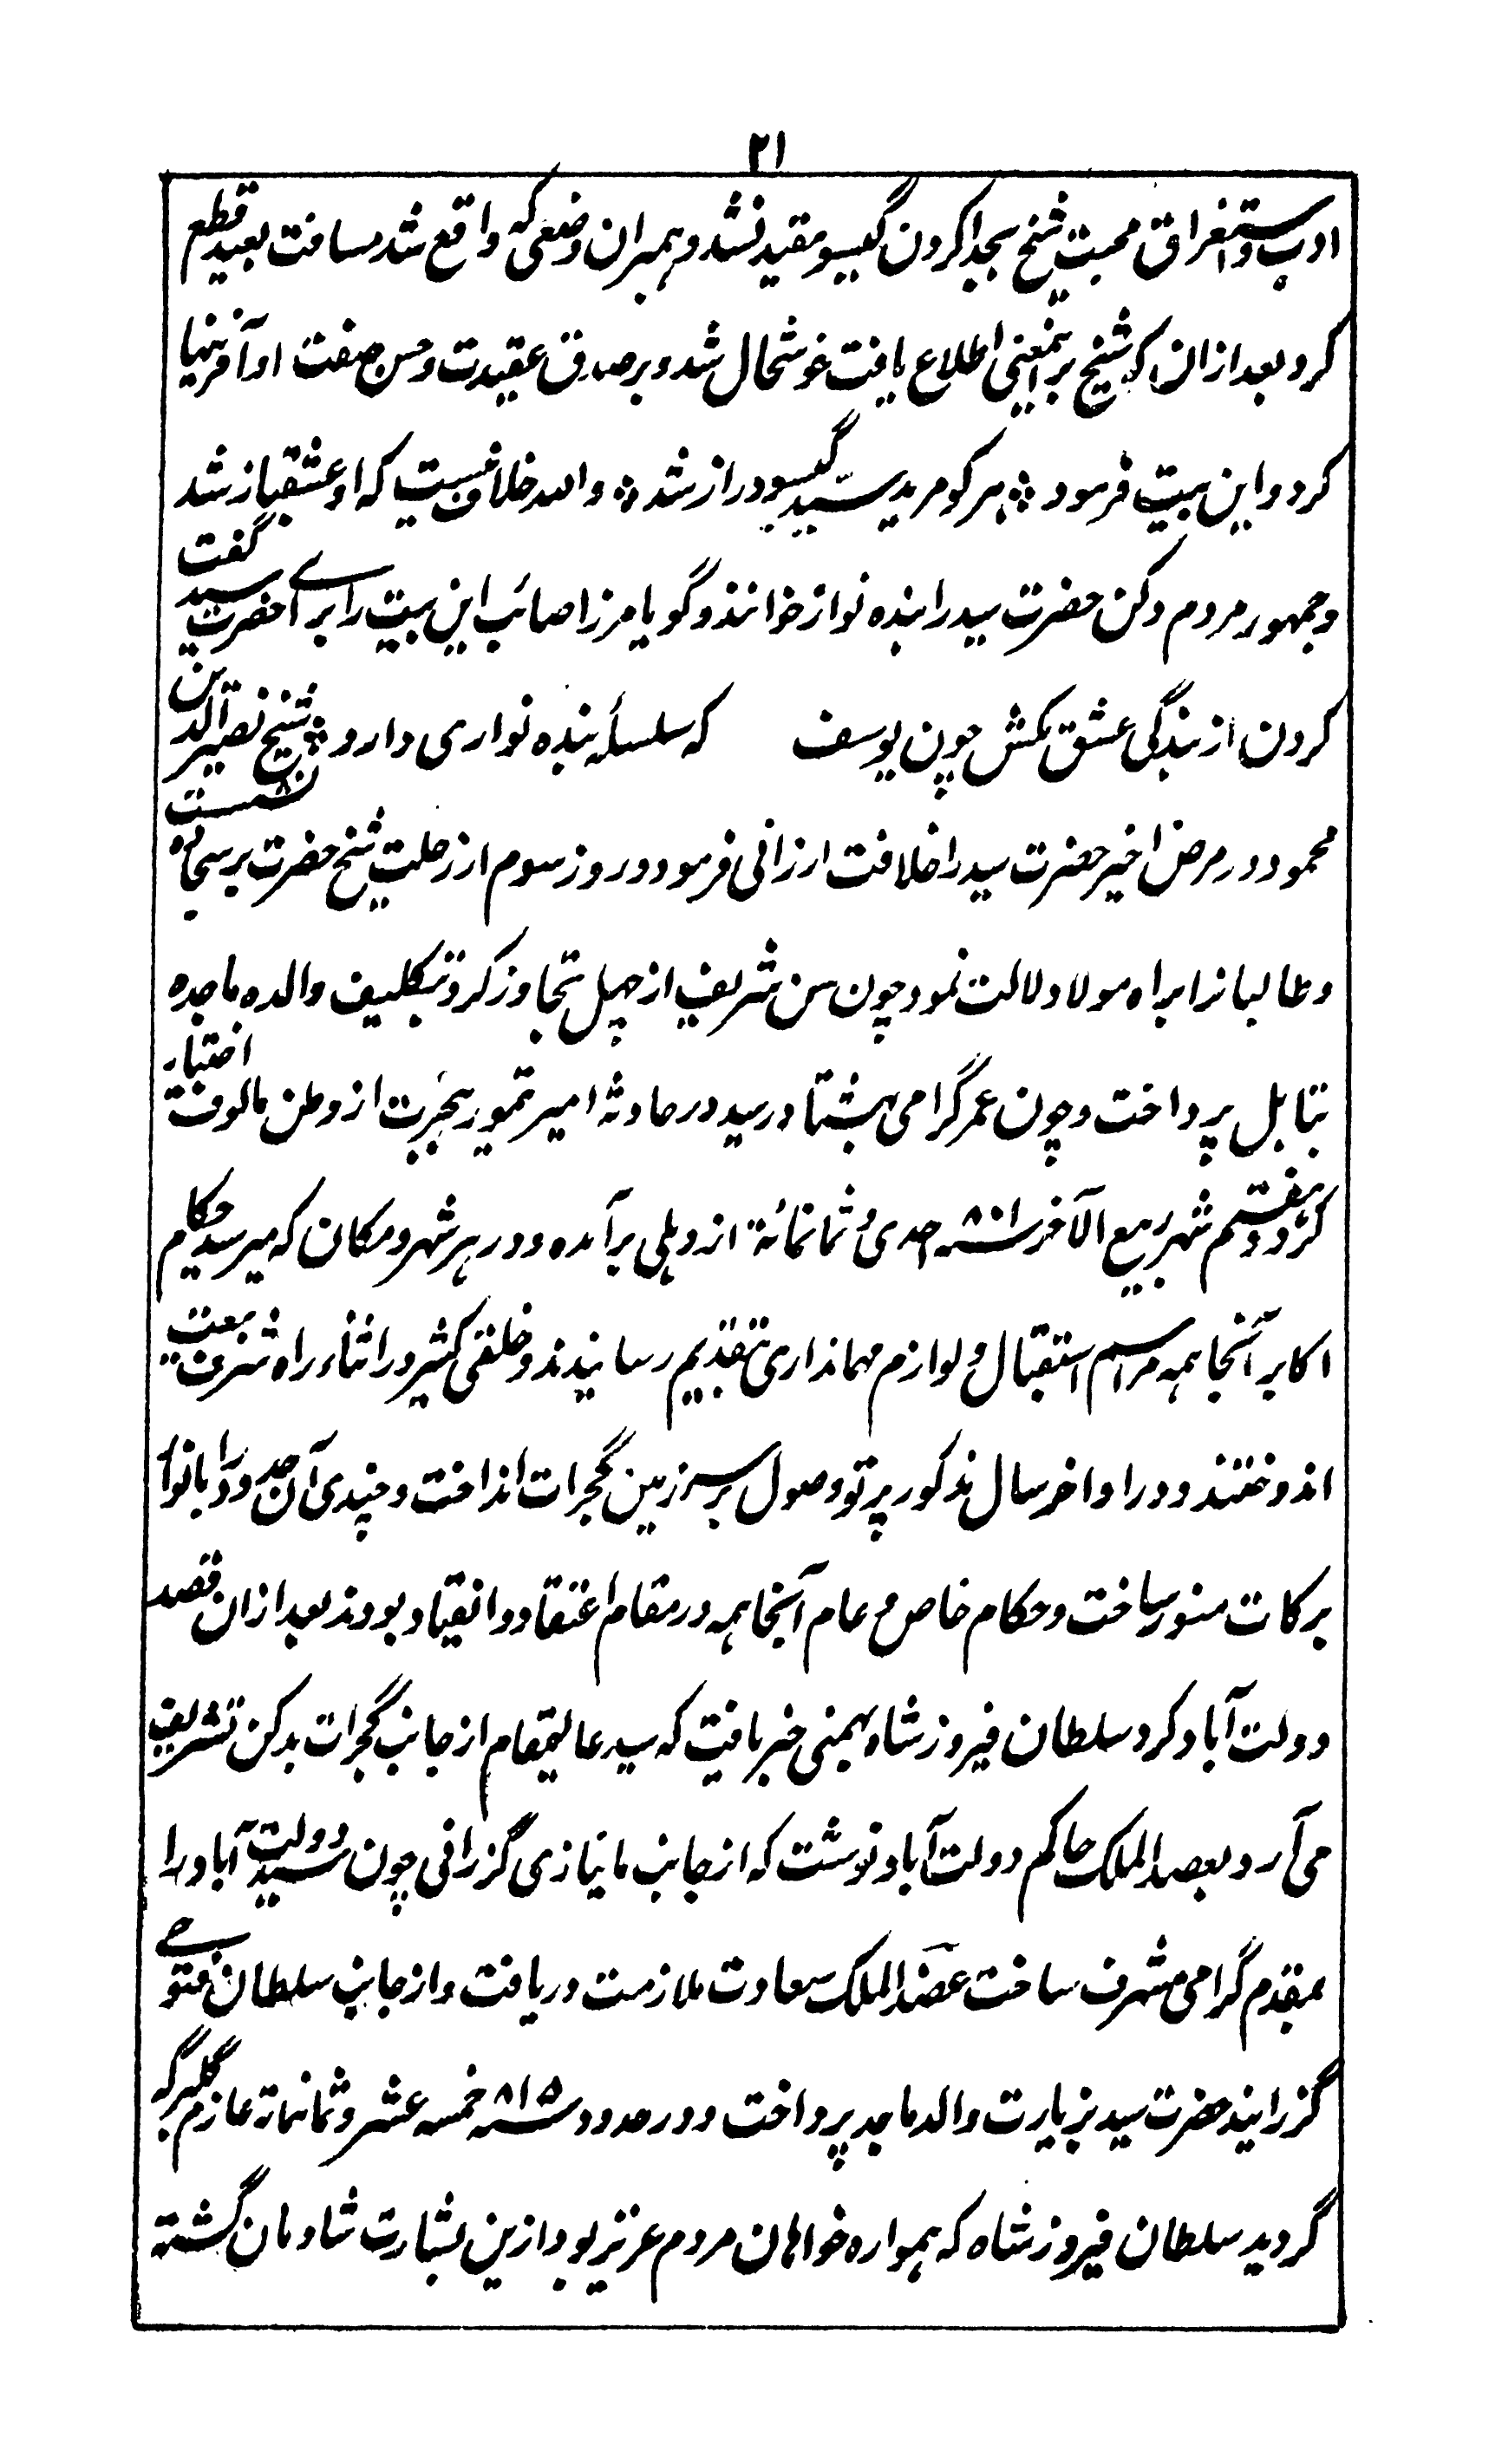 ۲۱
ادب و استغراق محبت شیخ بجدا کردن گیسو مقید نشد و بهمبران وضعی که واقع شد مسافت بعید قطع
کرد بعد ازان که شیخ برینمعنی اطلاع یافت خوشحال شد و بر صدق عقیدت و حسن صفت او آفرینها
کرد و این بیت فرمود ؞ هر کو مرید سید گیسو دراز شد ؞ والله خلاف نیست که او عشقباز شد
و جمهور مردم دکن حضرت سید را بنده نواز خوانند و گویا مرزا صائب این بیت را برای حضرت سید گفت
کردن از بندگی عشق مکش چون یوسف که سلسلهٔ بنده نوازی دارد ؞ شیخ نصیر الدین
محمود در مرض اخیر حضرت سید را خلافت ارزانی فرمود و روز سوم از رحلت شیخ حضرت بر سجاده نشست
و طالبانرا براه مولا دلالت نمود چون سن شریف از چهل تجاوز کرد بتکلیف والده ماجده
بتاهل پرداخت و چون عمر گرامی بهشتاد رسید در حادثه امیر تمور هجرت از وطن مالوف اختیار
کرد و هفتم شهر ربیع الآخر سنه ۸۰۱ احدی و ثمانمائة از دهلی برآمده و در هر شهر و مکان که میرسید حکام
اکابر آنجا همه مراسم استقبال و لوازم مهمانداری بتقدیم رسانیدند و خلقی کثیر در اثناء راه شرف بیعت
اندوختند و در اواخر سال مذکور پرتو وصول بر سرزمین گجرات انداخت و چندی آن حدود را بانوار
برکات منور ساخت و حکام خاص و عام آنجا همه در مقام اعتقاد و انقیاد بودند بعد ازان قصد
دولت آباد کرد سلطان فیروز شاه بهمنی خبر یافت که سید عالیمقام از جانب گجرات بدکن تشریف
می آرد بعضد الملک حاکم دولت آباد نوشت که از جانب ما نیازی گزرانی چون سید دولت آباد را
بمقدم گرامی مشرف ساخت عضد الملک سعادت ملازمت دریافت و از جانب سلطان فتوحی
گزرانید حضرت سید بزیارت والد ماجد پرداخت و در حدود سنه ۸۱۵ خمسه عشر و ثمانمائة عازم گلبرگه
گردید سلطان فیروز شاه که همواره خواهان مردم عزیز بود ازین بشارت شادمان گشته